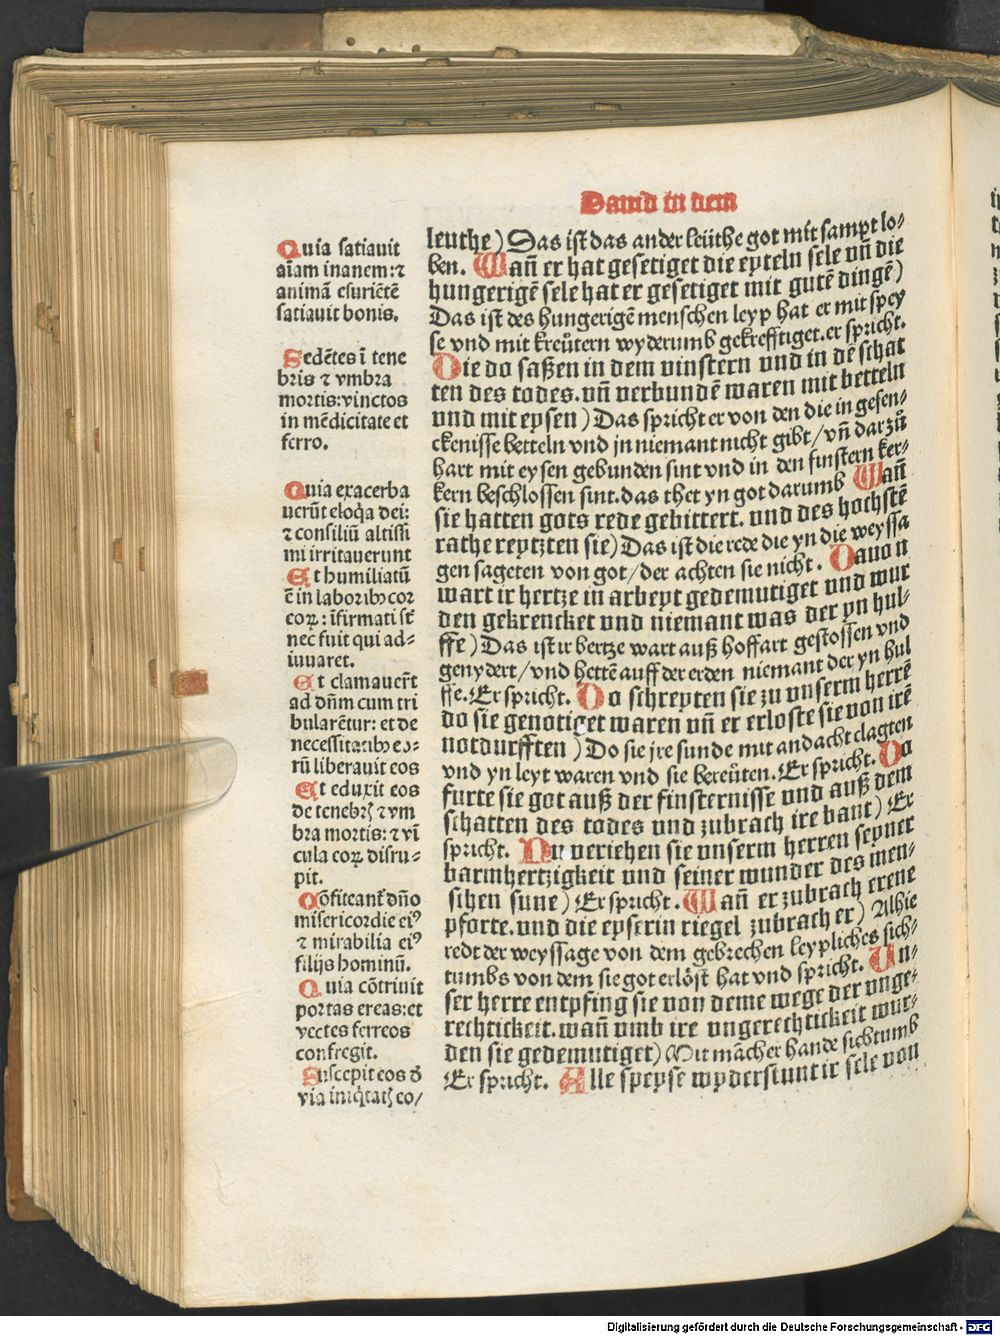 Dauid in dem
Quia satiauit
aīam inanem: ⁊
animā esuriētē
satiauit bonis.
Sedētes ī tene
bris ⁊ vmbra
mortis: vinctos
in mēdicitate et
ferro.
Quia exacerba
uerūt eloq̄a dei:
⁊ consiliū altissi
mi irritauerunt
Et humiliatū
ē in laboribꝰ cor
coꝝ: īfirmati st̄
nec fuit qui ad-
iuuaret.
Et clamauer̄t
ad dn̄m cum tri
bularētur: et de
necessitatibꝰ eo⸗
rū liberauit eos
Et eduxit eos
de tenebrꝭ ⁊ vm
bra mortis: ⁊ vī
cula coꝝ disru⸗
pit.
Cōfiteant᷑ dn̄o
misericordie eiꝰ
⁊ mirabilia eiꝰ
filijs hominū.
Quia cōtriuit
portas ereas: et
vectes ferreos
confregit.
Suscepit eos ð
via iniq̄tatꝭ eo/
leuthe) Das ist das ander leüthe got mit sampt lo⸗
ben. Wañ er hat gesetiget die eyteln sele vñ die
hungerigē sele hat er gesetiget mit gutē dingē)
Das ist des hungerigē menschen leyp hat er mit spey
se vnd mit kreütern wyderumb gekrefftiget. er spricht.
Die do saßen in dem vinstern vnd in dē schat
ten des todes. vñ verbundē waren mit betteln
vnd mit eysen) Das spricht er von den die in gefen⸗
ckenisse betteln vnd jn niemant nicht gibt/ vñ darzů
hart mit eysen gebunden sint vnd in den finstern ker⸗
kern beschlossen sint. das thet yn got darumb Wañ
sie hatten gots rede gebittert. vnd des hochstē
rathe reytzten sie) Das ist die rede die yn die weyssa
gen sageten von got/ der achten sie nicht. Dauon
wart ir hertze in arbeyt gedemutiget vnd wur
den gekrencket vnd niemant was der yn hul⸗
ffe) Das ist ir hertze wart auß hoffart gestossen vnd
genydert/ vnd hettē auff der erden niemant der yn hul
ffe. Er spricht. Do schreyten sie zu vnserm herrē
do sie genotiget waren vñ er erloste sie von irē
notdurfften) Do sie jre sunde mit andacht clagten
vnd yn leyt waren vnd sie bereüten. Er spricht. Do
furte sie got auß der finsternisse vnd auß dem
schatten des todes vnd zubrach ire bant) Er
spricht. Nu veriehen sie vnserm herren seyner
barmhertzigkeit vnd seiner wunder des men⸗
schen sune) Er spricht. Wañ er zubrach erene
pforte. vnd die eyserin riegel zubrach er) Alhie
redt der weyssage von dem gebrechen leypliches sich⸗
tumbs von dem sie got erlöst hat vnd spricht. Un⸗
ser herre entpfing sie von deme wege der vnge⸗
rechtickeit. wañ vmb ire vngerechtickeit wur⸗
den sie gedemutiget) Mit mācher hande sichtumb
Er spricht. Alle speyse wyderstunt ir sele von
Digitalisierung gefördert durch die Deutsche Forschungsgemeinschaft - DFG